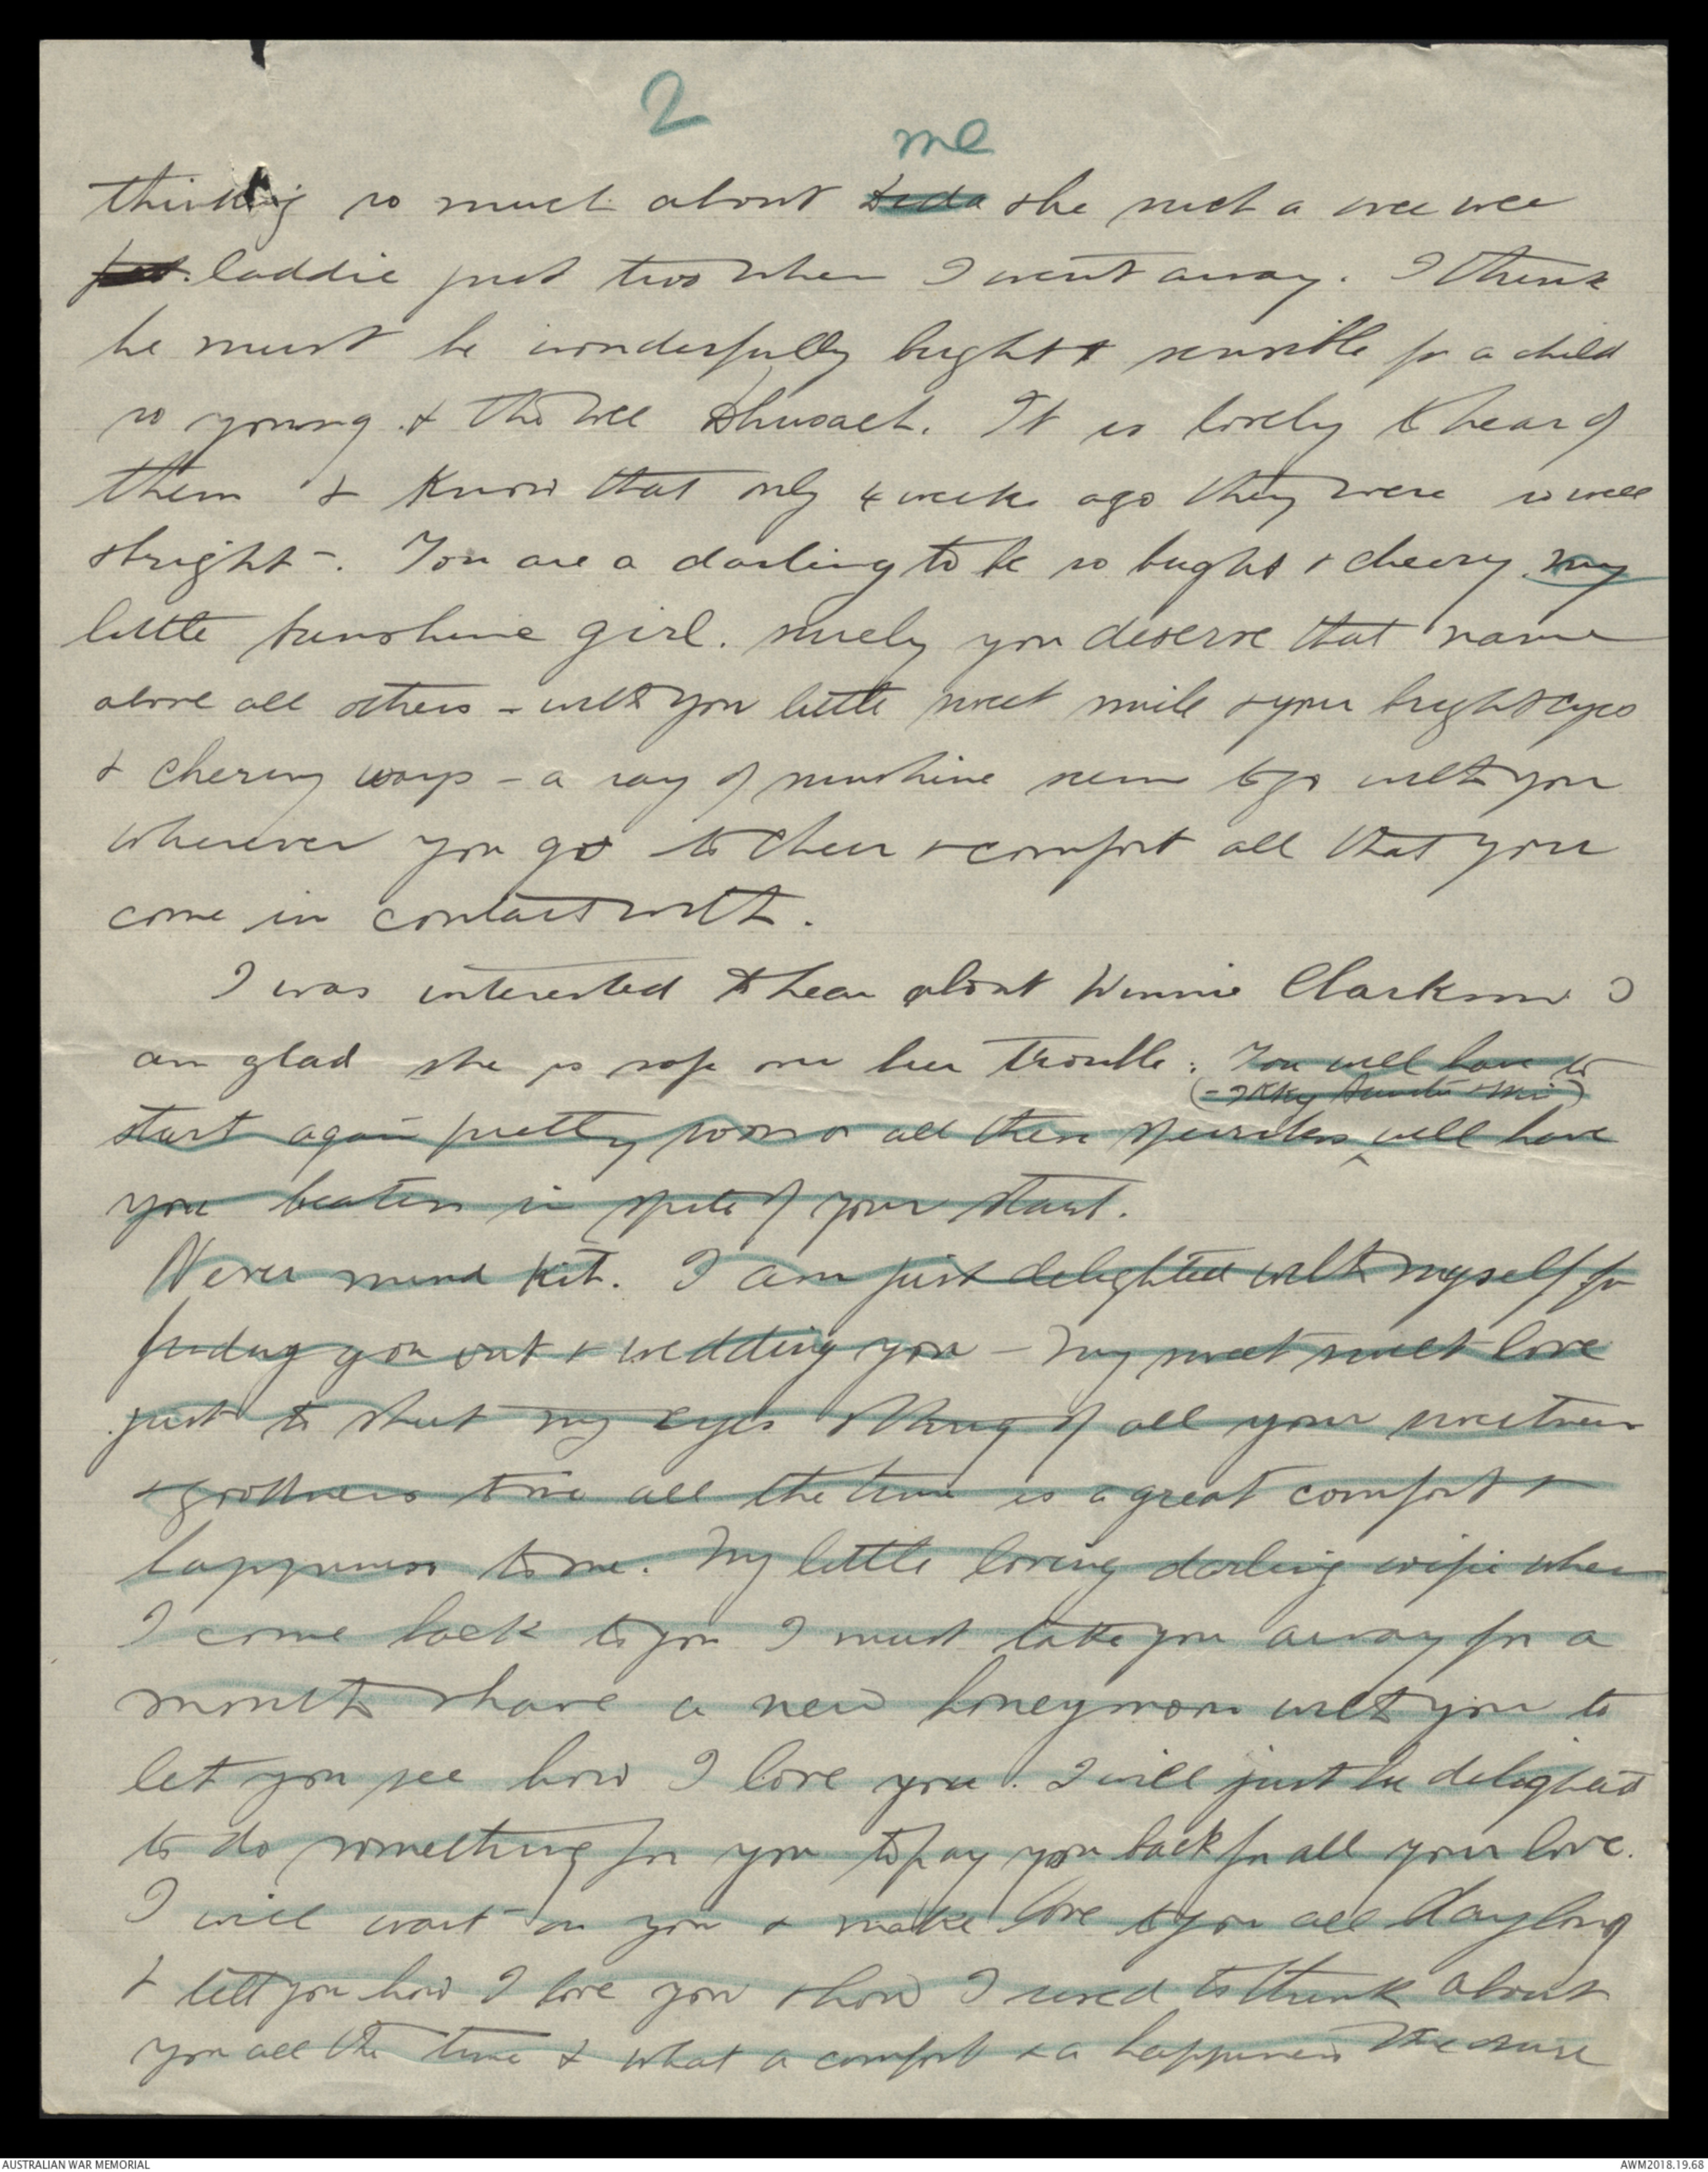 2
me
thinking so much about Dida & he such a wee wee
pet. laddie just two when I went away. I think
he must be wonderfully bright & sensible for a child
so young & the wee. It is lovely to hear of
them & know that only 4 weeks ago they were so well
& bright -. You are a darling to be so bright & cheery my
little sunshine girl. surely you deserve that name
above all others - with you little sweet smile & your bright eyes
& chering ways - a ray of sunshine seems to go with you
wherever you go to cheer & comfort all that you
come in contact with.
I was interested to hear about Winnie Clarkson I
am glad she is safe over her trouble. You will have to
start again pretty soon or all these will have
you beaten in spite of your start.
Never mind Kit. I am just delighted with myself for
finding you out & wedding you - my sweet sweet love
just to shut my eyes & think of all your sweetness
& goodness to me all the time is a great comfort &
happiness to me. My little loving darling wifie when
I come back to you I must take you away for a
month & have a new honeymoon with you to
let you see how I love you. I will just be delighted
to do something for you to pay you back for all your love.
I will wait on you & make love to you all day long
& tell you how I love you & how I used to think about
you all the time & what a comfort & a happiness
AUSTRALIAN WAR MEMORIAL
AWM2018.19.68